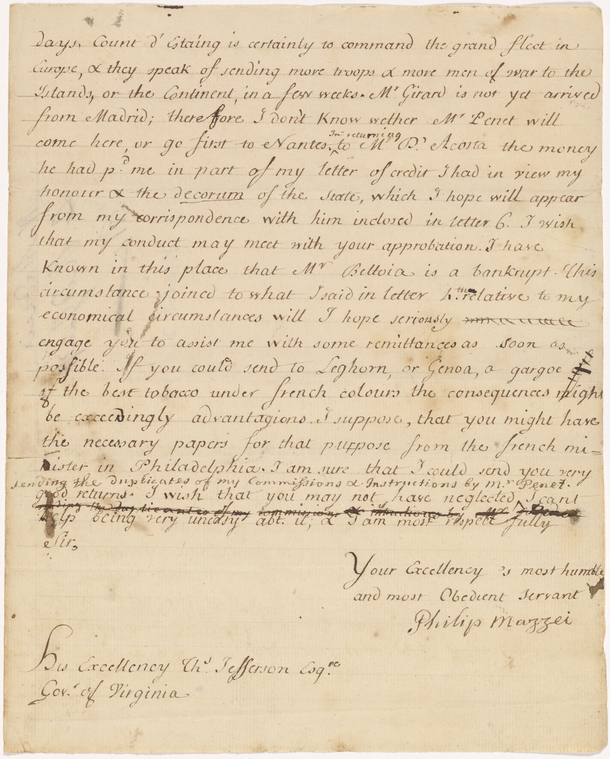 days. Count d'Estaing is certainly to command the grand fleet in
Europe, & they speak of sending more troops & more men of war to the
Islands, or the Continent, in a few weeks. Mr. Girard is not yet arrived
from Madrid; therefore I don't Know wether Mr. Penet will
In returning
come here, or go first to Nantes. to Mr. Bn. Acosta the money
he had pd. me in part of my letter of credit I had in view my
honour & the decorum of the State, which I hope will appear
from my correspondence with him inclosed in letter 6. I wish
that my conduct may meet with your approbation. I have
Known in this place that Mr. Bettoia is a bankrupt. This
circumstance joined to what I said in letter 4.th relative to my
economical circumstances will I hope seriously
engage you to assist me with some remittances as soon as
possible. If you could send to Leghorn, or Genoa, a gargoe
of the best tobacco under french colours the consequences might
be exceedingly advantagious. I suppose, that you might have
the necessary papers for that purpose from the french mi-
nister in Philadelphia. I am sure that I could send you very
sending the duplicates of my Commissions & Instructions by mr. Penet.
good returns. I wish that you may not have neglected I cant
help being very uneasy abt. it; & I am most respectfully
Sir,
Your Excellency's most humble
and most Obedient Servant
Philip Mazzei
His Excellency Ths. Jefferson Esqre.
Govr. of Virginia